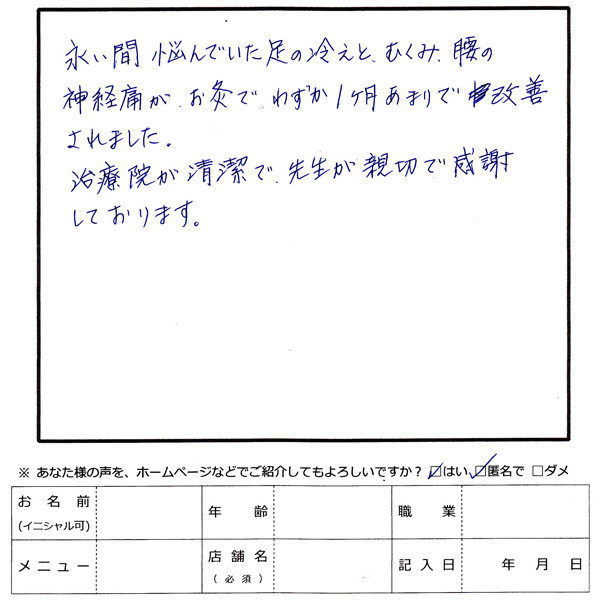 永い間 悩んでいた足の冷えと、むくみ、腰の
神経痛が、お灸で、わずか1ヶ月あまりで改善
されました。
治療院が清潔で、先生が親切で感謝
しております。
※ あなた様の声を、ホームページなどでご紹介してもよろしいですか？ ☑はい ☑匿名で □ダメ
お名前 年齢 職業
(イニシャル可)
メニュー 店舗名 記入日 年 月 日
(必須)